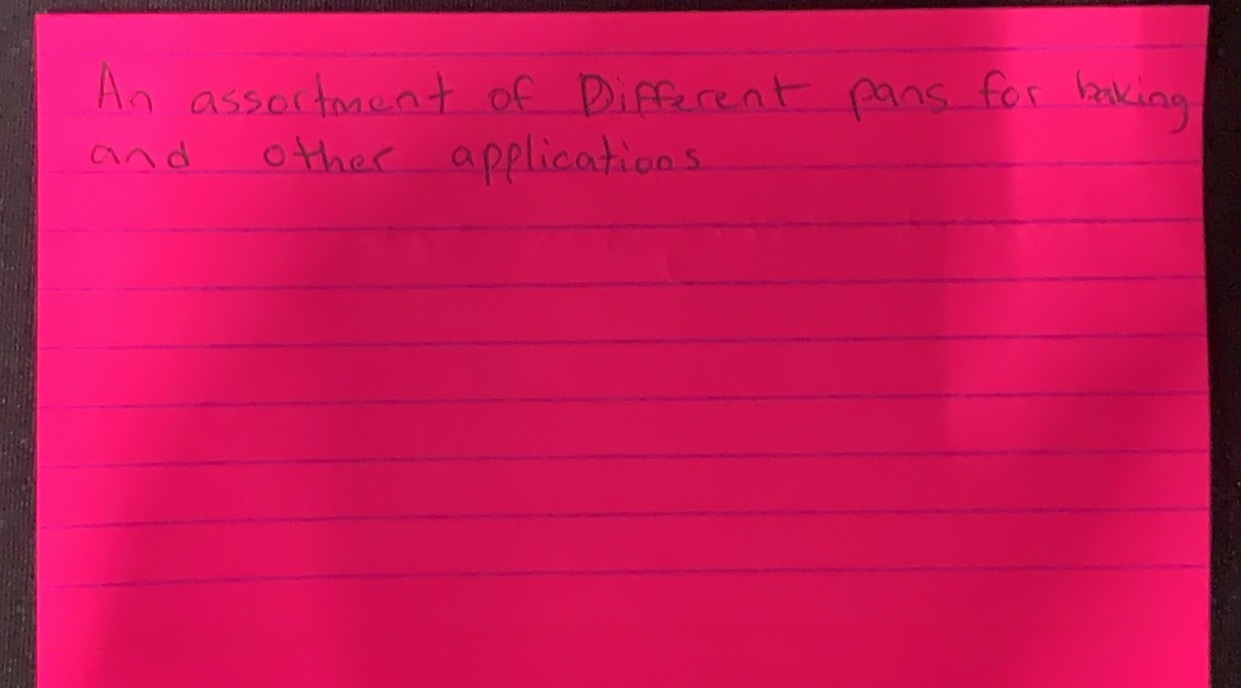 An assortment of Different pans for baking
and other applications